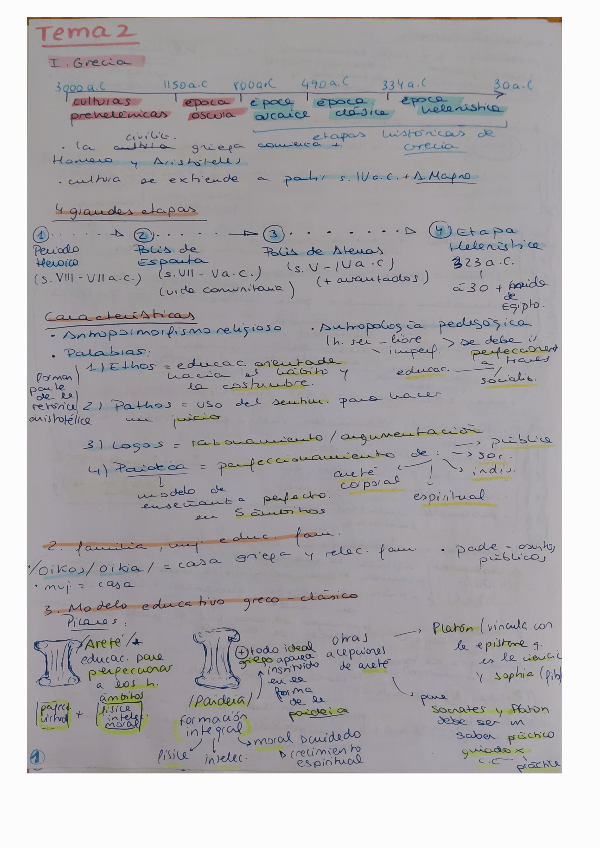 Tema 2
I. Grecia
3000 a.C 1150 a.C 800 a.C 490 a.C 334 a.C 30 a.C
culturas prehelénicas
época oscura
época arcaica
época clásica
época helenística
etapas históricas de Grecia
civiliz.
· La cultura griega comienza +
Homero y Aristóteles
· cultura se extiende a partir s. IV a.C. + A. Magno
4 grandes etapas
1 2 3 4) Etapa
Periodo Heroico
(s. VIII - VII a.c.)
Polis de Esparta
(s. VII - V a.c.)
(vida comunitaria)
Polis de Atenas
(s. V - IV a.c)
(+ avanzados)
Helenística
323 a.C.
a 30 +
de
Egipto.
Características
· Antropomorfismo religioso
· Antropología pedagógica
(h. ser - libre > se debe
imperf. perfeccionar
a través
educac.
socializ.
· Palabras:
forman
parte
de la
retórica
aristotélica
1) Ethos = educac. orientada
hacia el hábito y
la costumbre.
2) Pathos = uso del sentim. para hacer
un juicio
3) Logos = razonamiento / argumentación
4) Paideia = perfeccionamiento de:
pública
soc.
indiv.
espiritual
areté
corporal
modelo de
enseñanza perfecto.
en 5 ámbitos
2. familia, muj educ. fam.
/Oikos/Oikia/ = casa griega y relac. fam
· padre = asuntos
públicos
· muj = casa
3. Modelo educativo greco-clásico
Pilares:
/Areté/
educac. para
perfeccionar
a los h.
ámbitos
+
física
intelec.
moral
/Paideia/
formación
integral
física
intelec.
moral
crecimiento
espiritual
+ todo ideal
griego
instituido
en la
forma
de la
paideia
otras
acepciones
de areté
Platón /vincula con
la episteme q.
es la ciencia
y sophia
para
Sócrates y Platón
debe ser un
saber práctico
guiado x
práctica
1